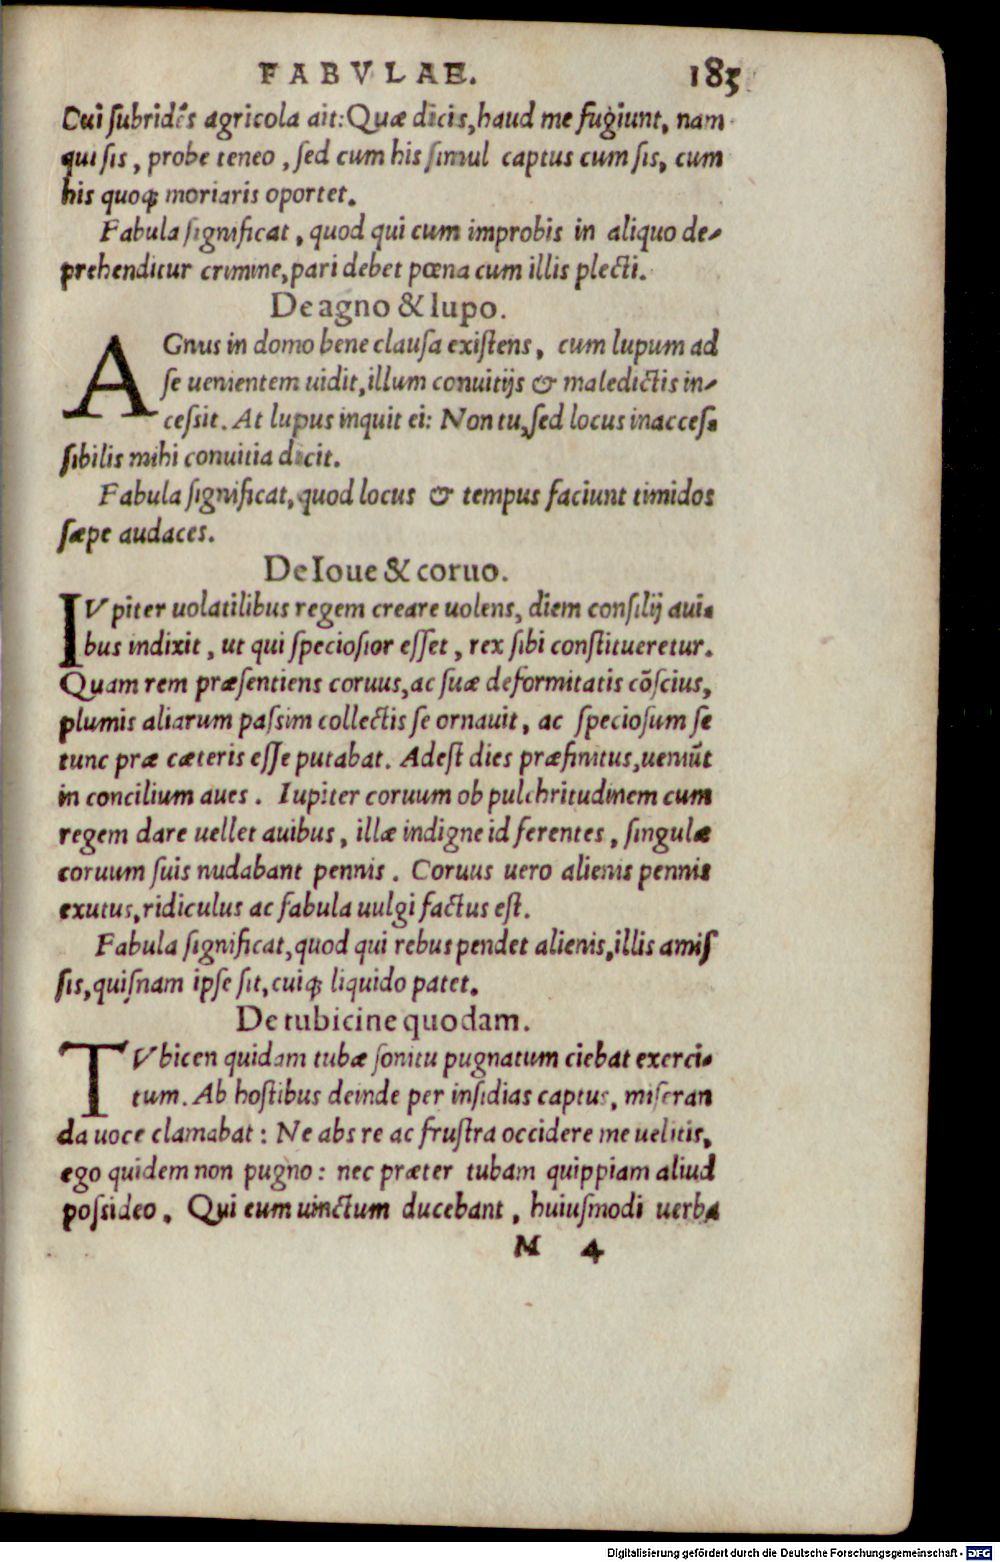 FABVLAE. 185
Cui subridẽs agricola ait: Quæ dicis, haud me fugiunt, nam
qui sis, probe teneo, sed cum his simul captus cum sis, cum
his quoqꝫ moriaris oportet.
Fabula significat, quod qui cum improbis in aliquo de-
prehenditur crimine, pari debet pœna cum illis plecti.
De agno & lupo.
AGnus in domo bene clausa existens, cum lupum ad
se uenientem uidit, illum conuitijs & maledictis in-
cessit. At lupus inquit ei: Non tu, sed locus inacces-
sibilis mihi conuitia dicit.
Fabula significat, quod locus & tempus faciunt timidos
sæpe audaces.
De Ioue & coruo.
IVpiter uolatilibus regem creare uolens, diem consilij aui-
bus indixit, ut qui speciosior esset, rex sibi constitueretur.
Quam rem præsentiens coruus, ac suæ deformitatis cõscius,
plumis aliarum passim collectis se ornauit, ac speciosum se
tunc præ cæteris esse putabat. Adest dies præfinitus, ueniũt
in concilium aues. Iupiter coruum ob pulchritudinem cum
regem dare uellet auibus, illæ indigne id ferentes, singulæ
coruum suis nudabant pennis. Coruus uero alienis pennis
exutus, ridiculus ac fabula uulgi factus est.
Fabula significat, quod qui rebus pendet alienis, illis amis
sis, quisnam ipse sit, cuiqꝫ liquido patet.
De tubicine quodam.
TVbicen quidam tubæ sonitu pugnatum ciebat exerci-
tum. Ab hostibus deinde per insidias captus, miseran
da uoce clamabat: Ne abs re ac frustra occidere me uelitis,
ego quidem non pugno: nec præter tubam quippiam aliud
possideo. Qui eum uinctum ducebant, huiusmodi uerba
M 4
Digitalisierung gefördert durch die Deutsche Forschungsgemeinschaft - DFG